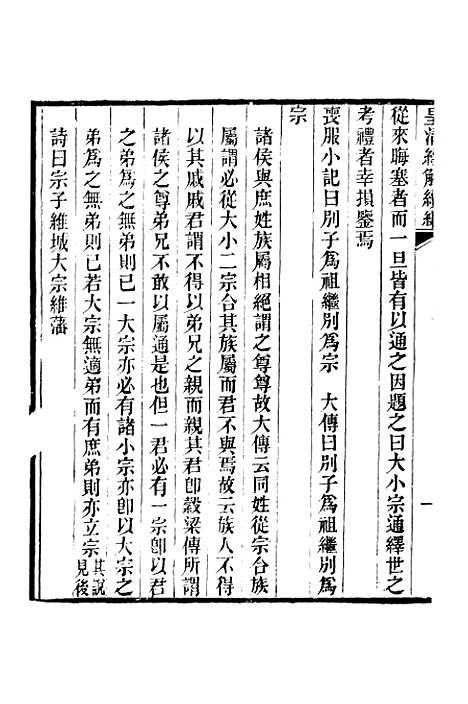 皇清經解續編
一
從來晦塞者而一旦皆有以通之因題之曰大小宗通繹世之
考禮者幸損鑒焉
喪服小記曰別子爲祖繼別爲宗　大傳曰別子爲祖繼別爲
宗
諸侯與庶姓族屬相絕謂之尊尊故大傳云同姓從宗合族
屬謂必從大小二宗合其族屬而君不與焉故云族人不得
以其戚戚君謂不得以弟兄之親而親其君卽穀梁傳所謂
諸侯之尊弟兄不敢以屬通是也但一君必有一宗卽以君
之弟爲之無弟則已一大宗亦必有諸小宗亦卽以大宗之
弟爲之無弟則已若大宗無適弟而有庶弟則亦立宗其說見後
詩曰宗子維城大宗維藩